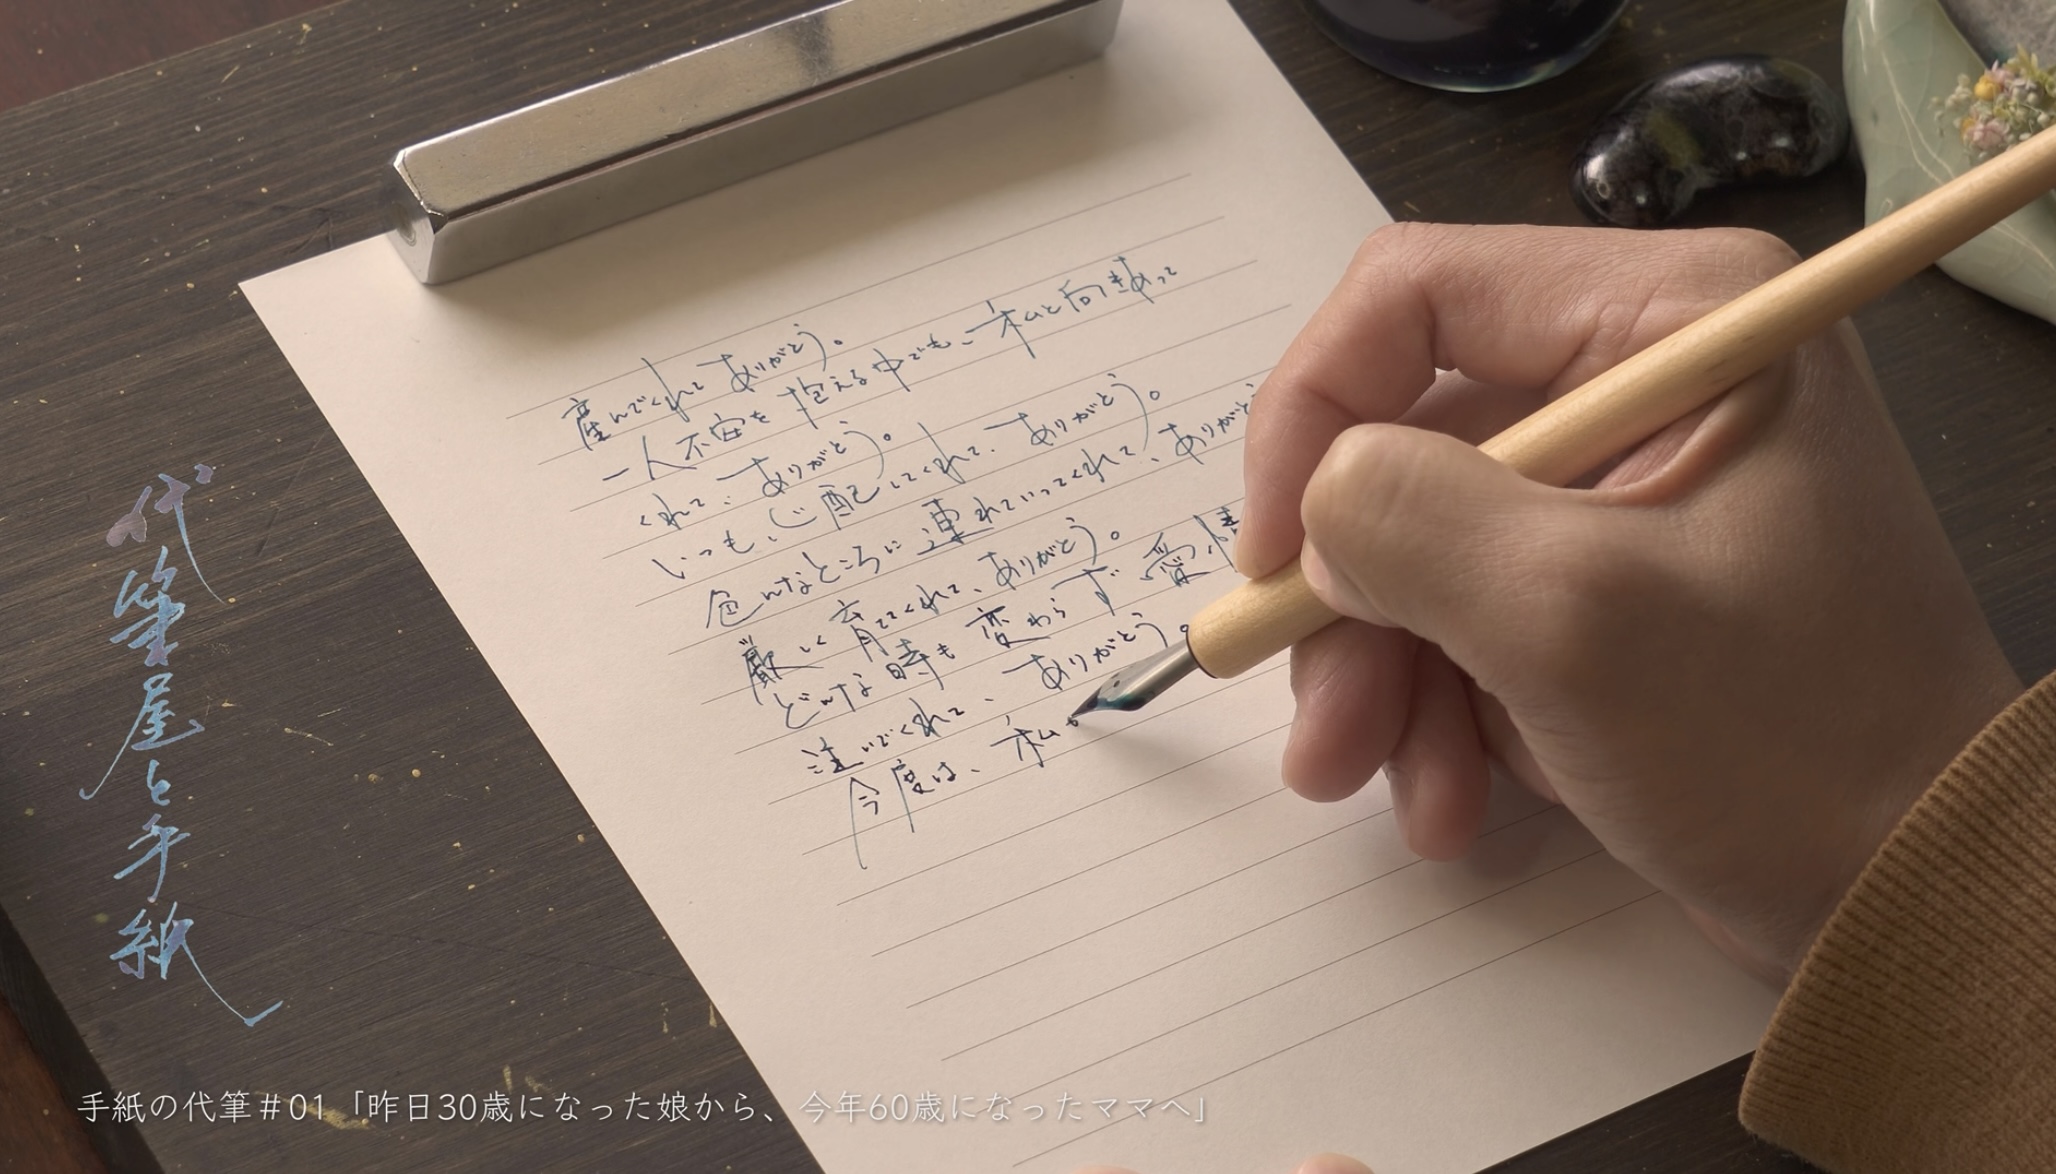 産んでくれてありがとう。
一人不安を抱える中でも、私と向きあって
くれて、ありがとう。
いつも、心配してくれて、ありがとう。
色んなところに連れていってくれて、ありがと
厳しく育ててくれて、ありがとう。
どんな時も変わらず愛情
注いでくれて、ありがとう。
今度は、私
代筆屋と手紙
手紙の代筆#01「昨日30歳になった娘から、今年60歳になったママへ」